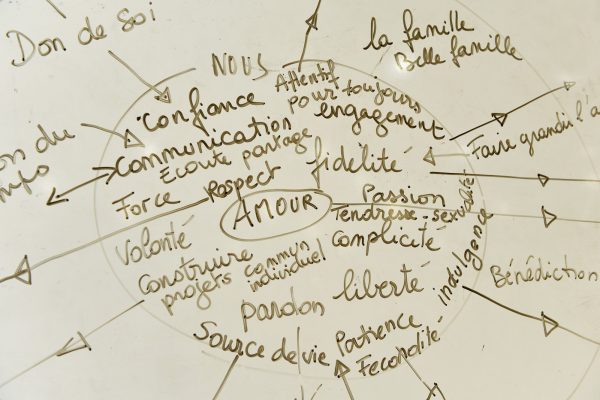 Don de Soi
la famille
Belle famille
NOUS
Attentif
pour toujours
confiance
engagement
communication
Ecoute partage
Faire grandir l'a
on du
fidélité
Force
Respect
AMOUR
Passion
Tendresse - sexualité
complicité
Volonté
Construire
projets commun
individuel
Indulgence
Bénédiction
pardon
liberté
Source de vie
Patience
Fecondité